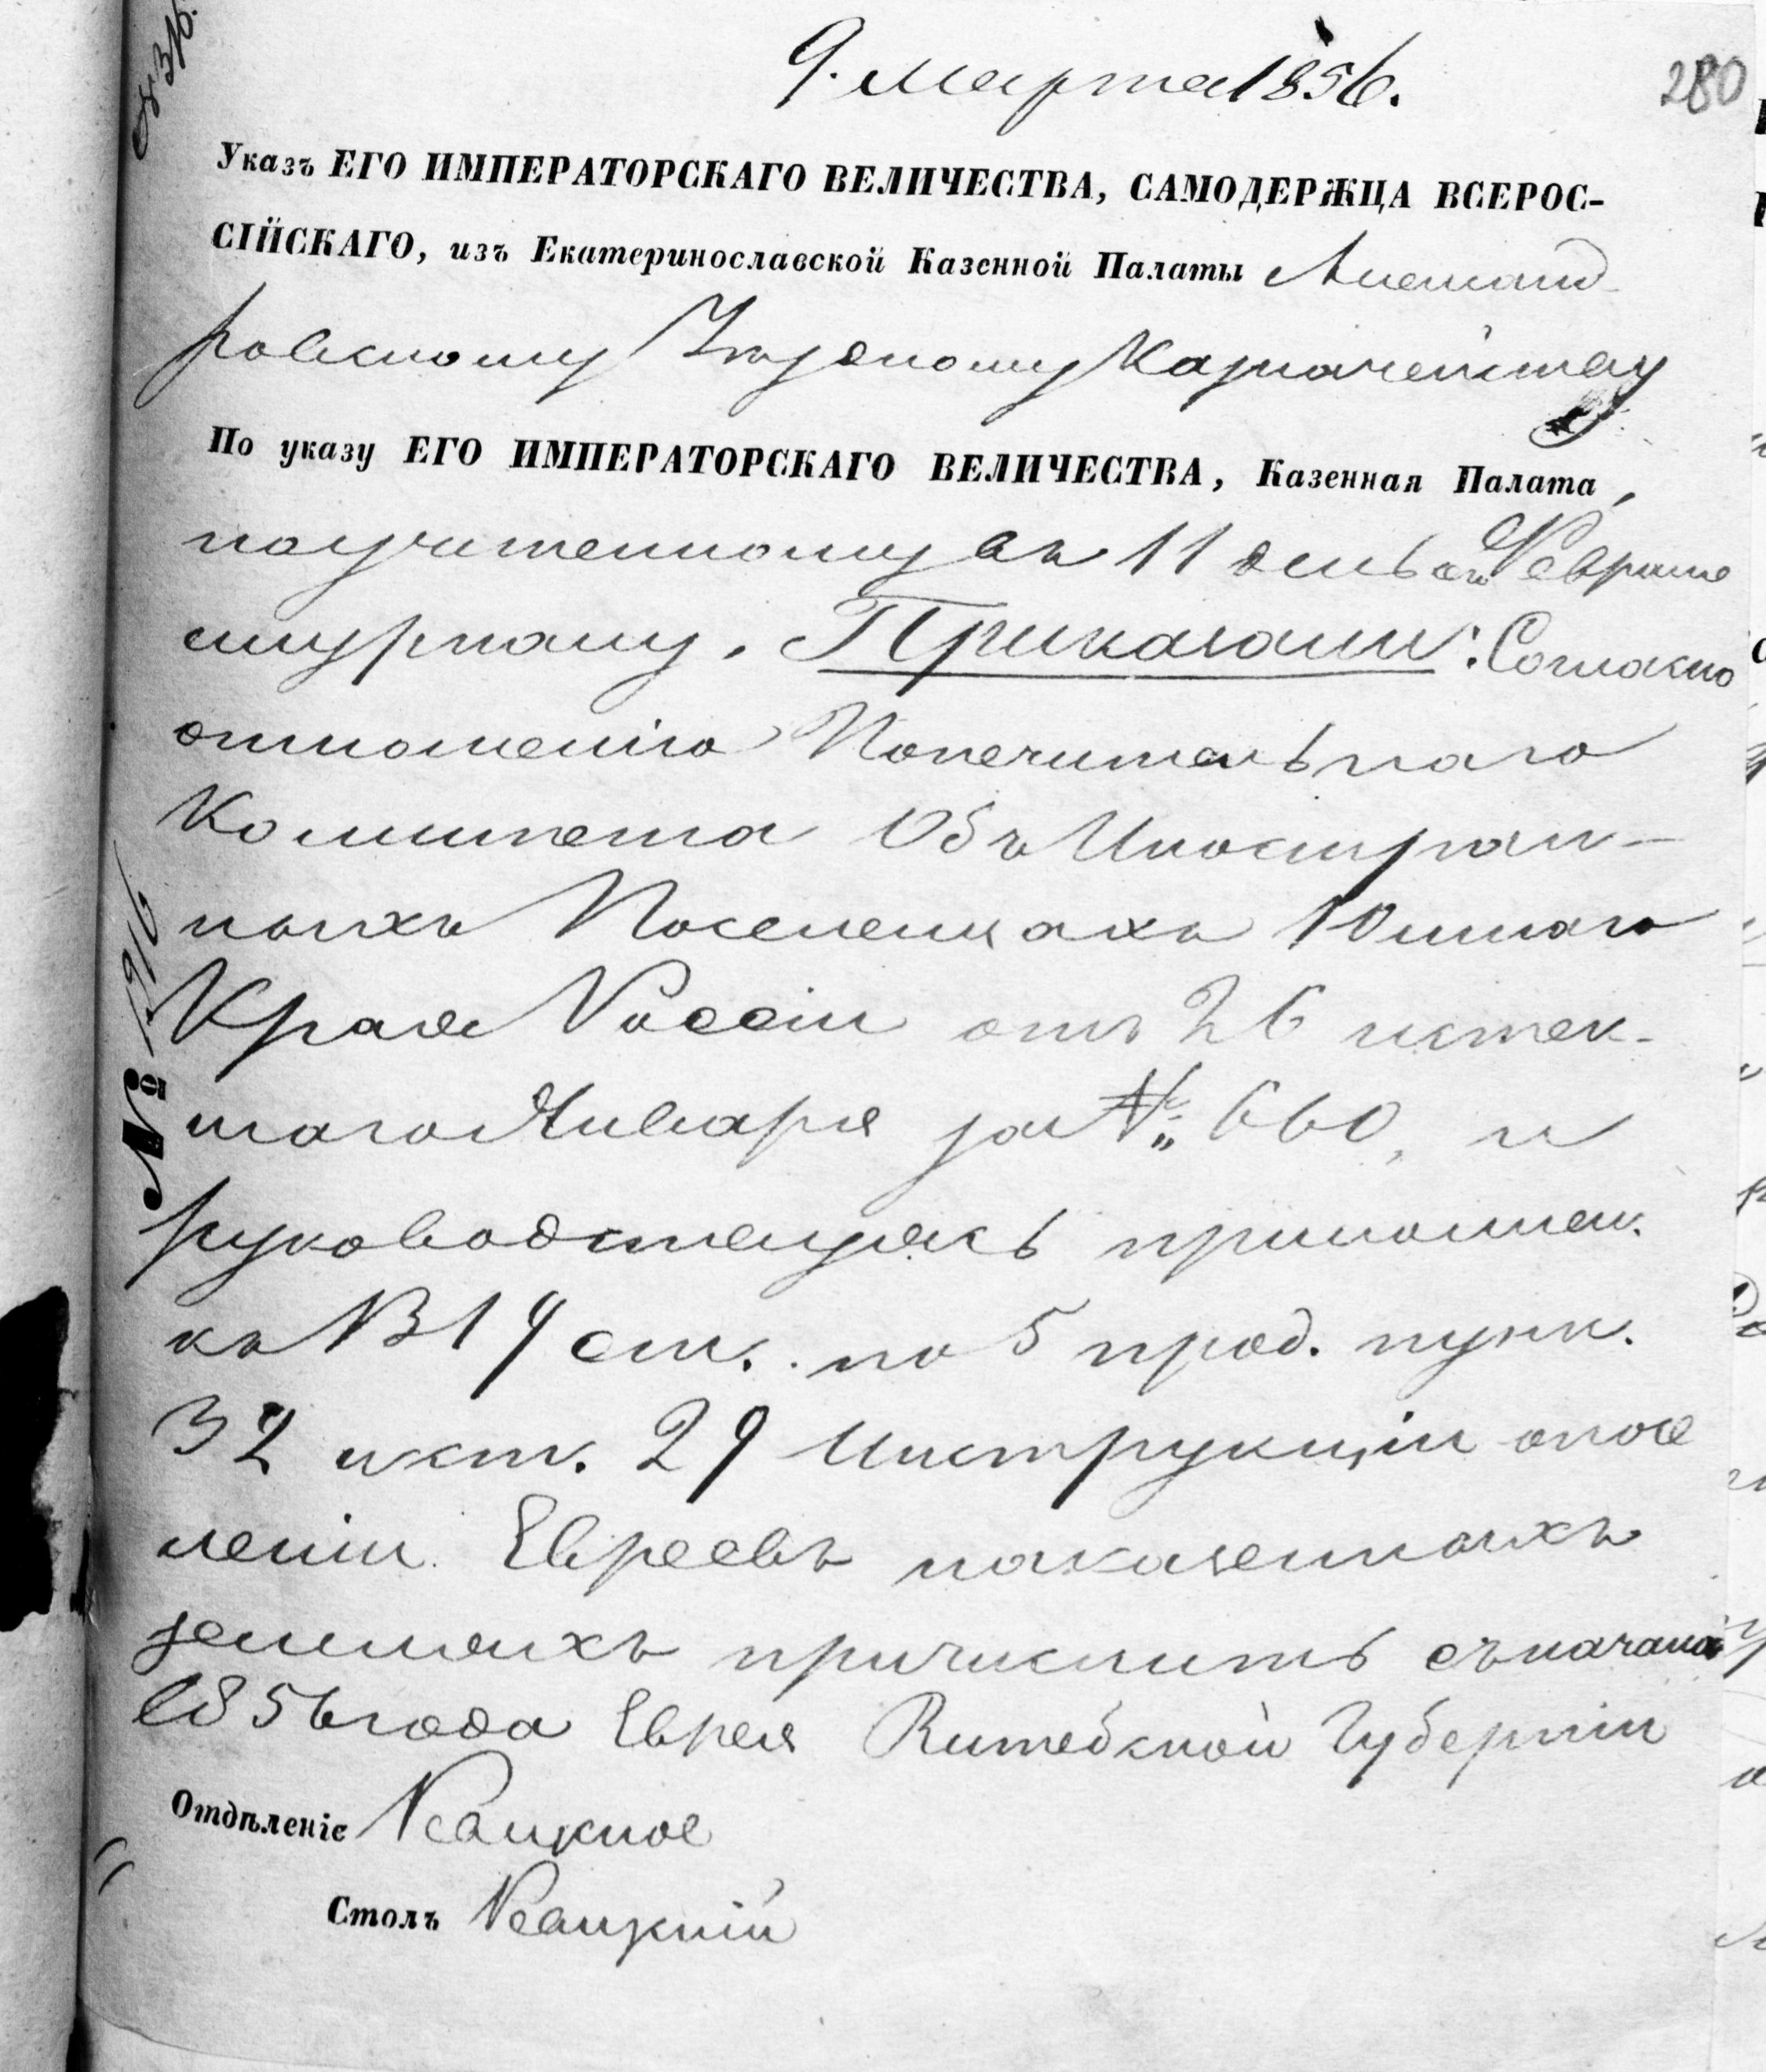 280
9. Марта 1856.
Указъ ЕГО ИМПЕРАТОРСКАГО ВЕЛИЧЕСТВА, САМОДЕРЖЦА ВСЕРОС-
СІЙСКАГО, изъ Екатеринославской Казенной Палаты Александ-
ровскому Уѣздному Казначейству
По указу ЕГО ИМПЕРАТОРСКАГО ВЕЛИЧЕСТВА, Казенная Палата,
по учиненному въ 11 день Февраля
журналу. Приказали: Согласно
отношенію Попечительнаго
Комитета Объ Иностран-
ныхъ Поселенцахъ Южнаго
Края Россіи отъ 26 истек-
шаго Января за №: 660, и
руководствуясь приложен.
къ 1914 ст. по 5 прод. пунк.
32 и ст. 29 Инструкціи о посе
леніи Евреевъ на казенныхъ
земляхъ причислить съ начала
1856 года Еврея Витебской Губерніи
Отдѣленіе Ревизское
Столъ Ревизскій
№